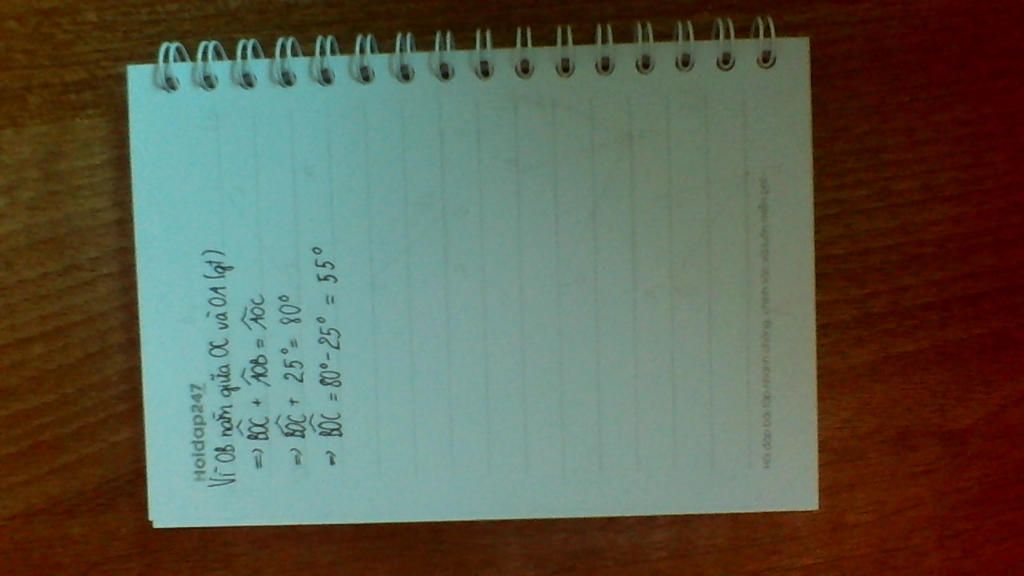 Hoidap247
Vì OB nằm giữa OC và OA (gt)
=> B̂OC + ÂOB = ÂOC
=> B̂OC + 25° = 80°
=> B̂OC = 80° - 25° = 55°